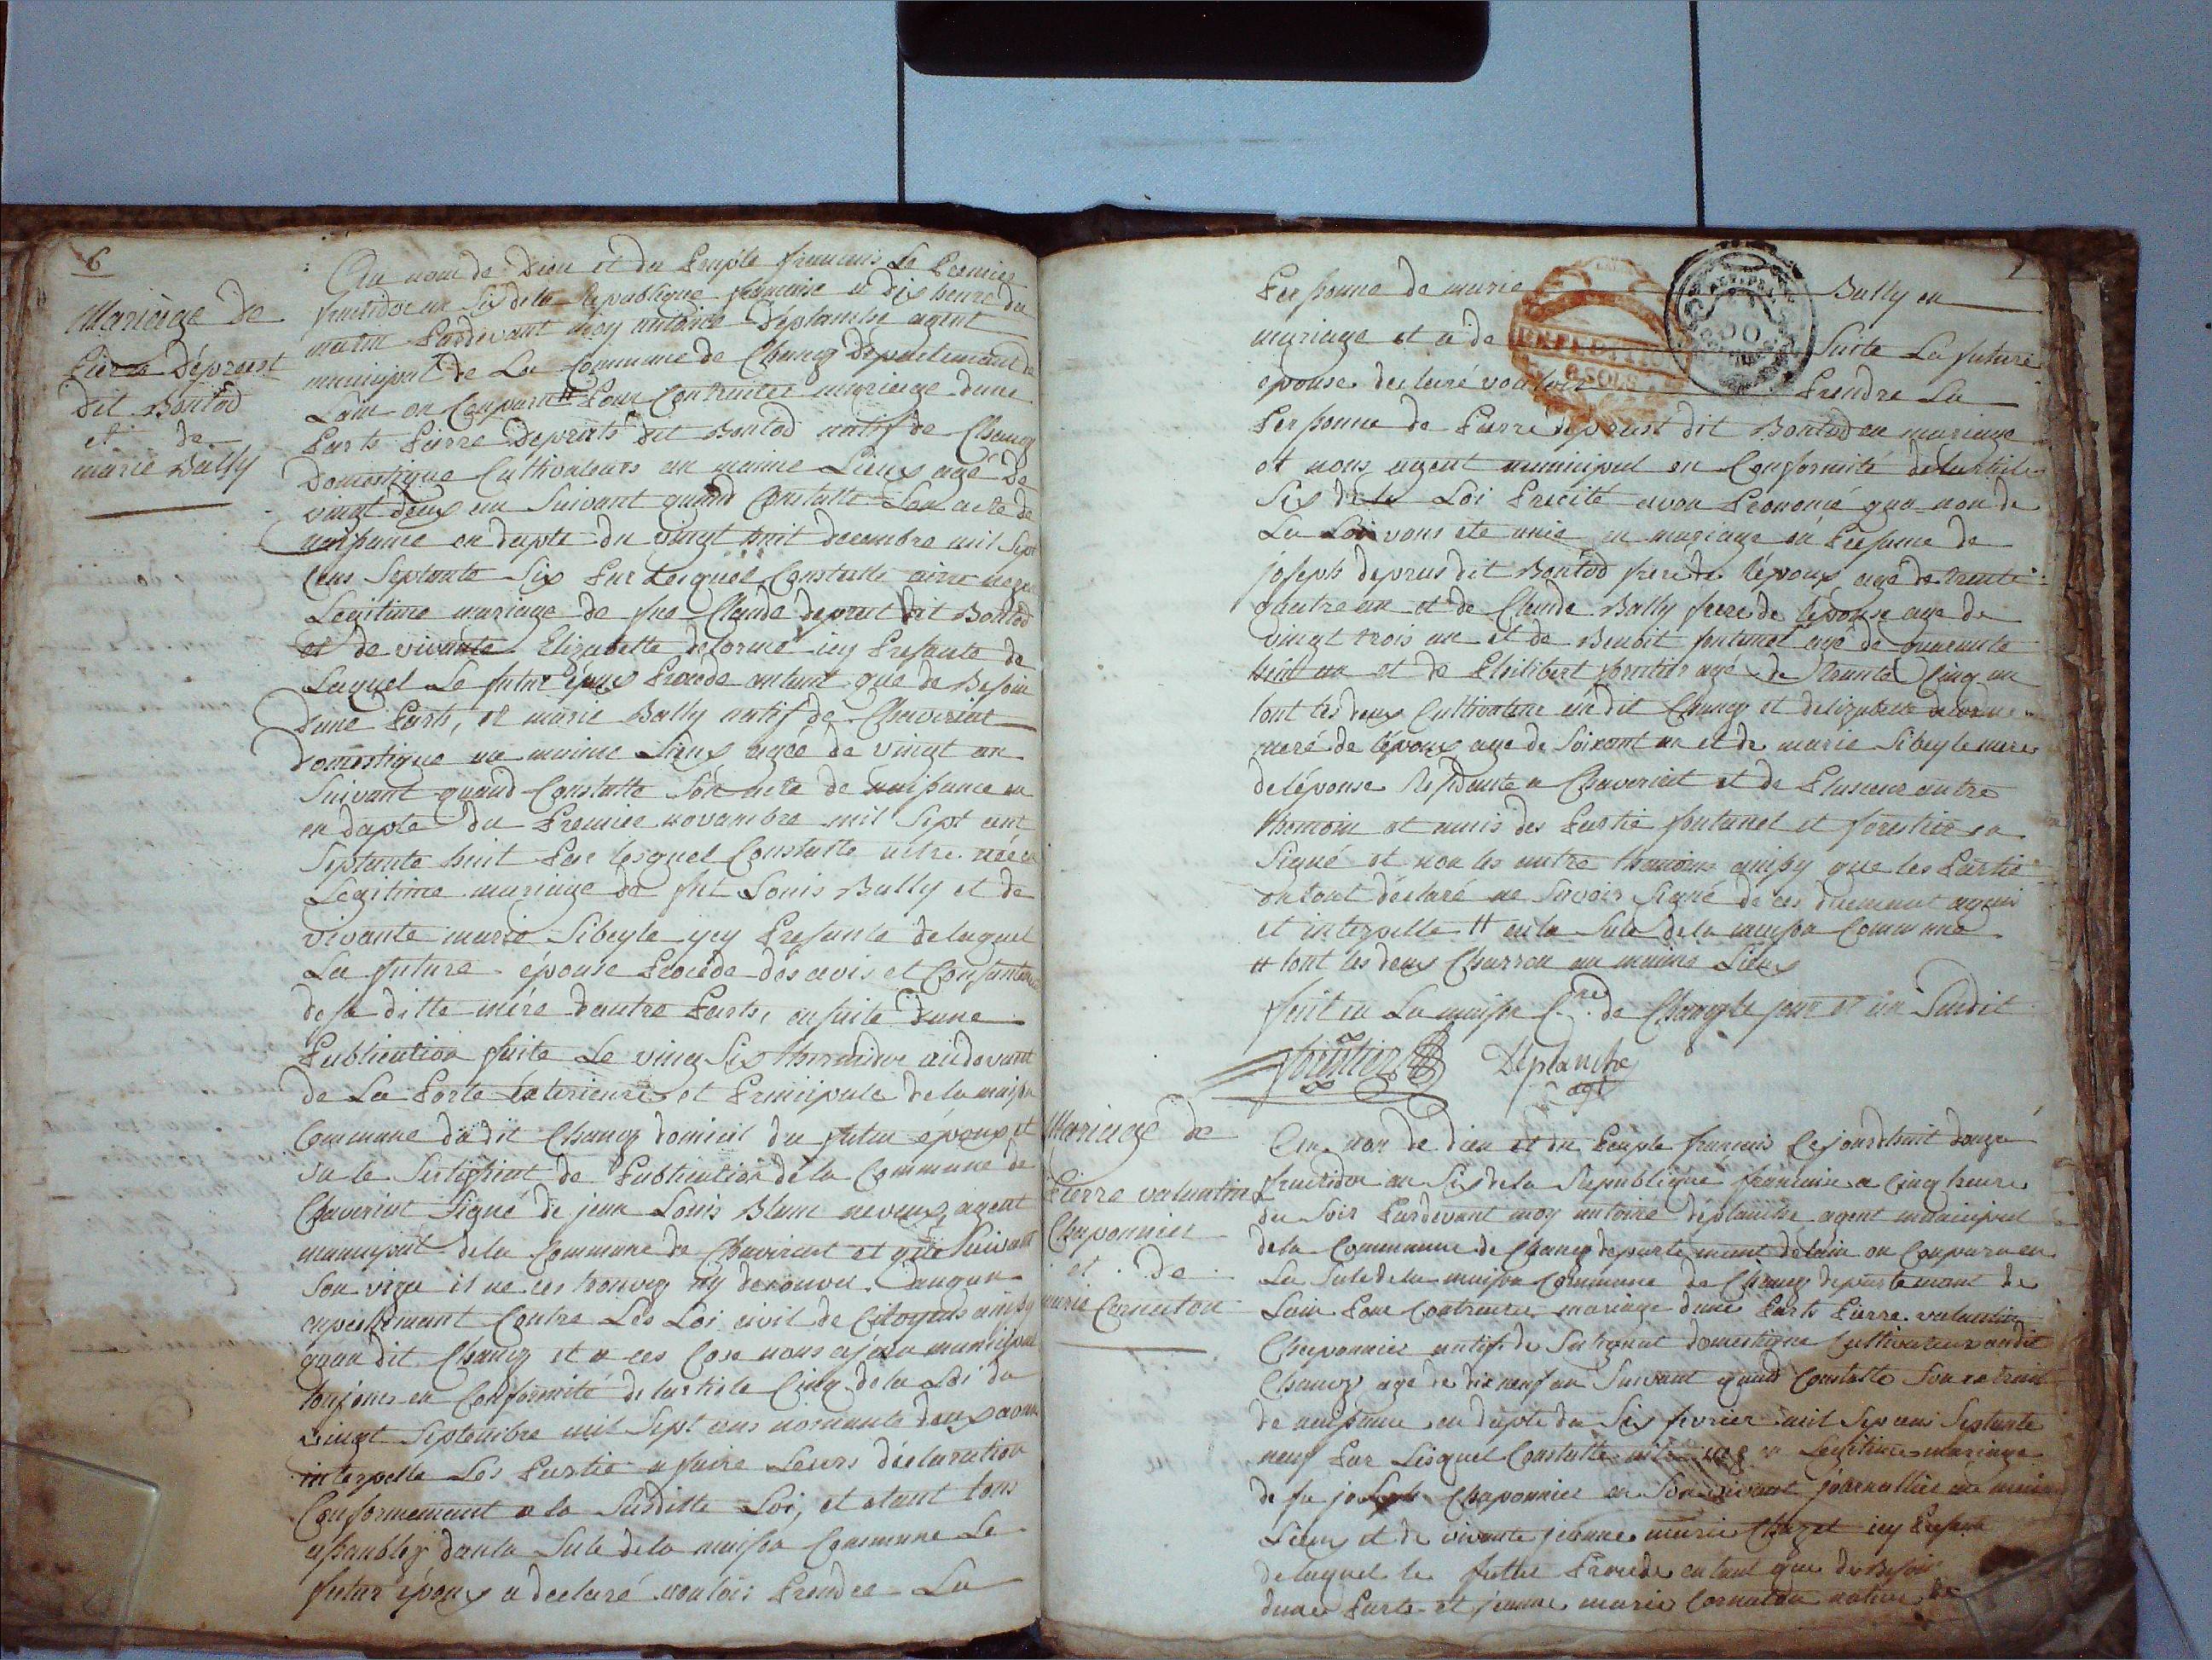 6
Mariäge de
Pierre Déprost
dit Bontod
et de
marie Bally
Au nom de Dieu et du Peuple francais Le Premier
fructidor an Six de la Republique francaise a dix heure du
matin Pardevant moy antoine Deplanche agent
municipal de La Commune de Chancy Departement de
Lain on Comparu # Pour Contracter mariage dune
Parts Pierre Deprats dit Bontod natif de Chancy
Domestique Cultivateurs au maime Lieux agé De
vingt deux an Suivant quand Constatte Son acte de
naissance en dapte du vingt huit decembre mil Sept
Cens Septente Six Par Lesquel Constatte aitre
Legitime mariage de feu Claude deprat dit Bontod
et de vivante Elizabette delorme icy Presante de
Laquel Le futur époux Procéde autant que de Besoin
Dune Parts, et marie Bally natif de Chaveriat
Domestique au maime Lieux ageé de vingt an
Suivant quand Constatte Son acte de naissance en
en dapte du Premier novambre mil Sept cent
Septante huit Par lesquel Constatte aitre née en
Legitime mariage de fut Louis Bally et de
vivante marie Sibeyle ycy Presante delaquel
La future épouse Procéde des avis et Consantemant
de sa ditte mére dautre Parts, ensuite dune
Publication faite Le ving Six thermidor au devant
de La Porte Exterieure et Principale de la maison
Commune dudit Chancy domicil du futur époux et
vu le Sertifficat de Publication de la Commune de
Chaveriat Signé de jean Louis Blanc neveux, agent
municipal de la Commune de Chaveriat et que Suivant
Son vize il ne ces trouvez ny decouver aucun
anpeschemant Contre Les Loi civil de Citoyens ainsy
quau dit Chancy et a ces Cose nous agent municipal
toujours en Conformité de larticle Cinq de la Loi du
vingt Septembre mil Sept cens nonante deux avons
interpelle Les Partie a faire Leurs déclaration
Conformement a la Susditte Loi, et etant tous
assamblez dans la Sale de la maison Commune Le
futur époux a declaré vouloir Prendre La
Personne de marie Bally en
mariage et a de Suite La future
epouse declaré vouloir Prendre La
Personne de Pierre deprast dit Bontod en mariage
et nous agent municipal en Conformité de larticle
Six de la Loi Precité avon Prononcé quau non de
La Loi vous ete unie en mariage en Presance de
joseph deprus dit Bontod frere de lépoux agé de trente
quatre an et de Claude Bally frere de lépouse age de
vingt trois an et de Benoit fontanel agé de
huit an et de Philibert forestier agé de trante Cinq an
tout les deux Cultivateur audit Chancy et delizabette
meré de lépoux age de Soixant an et de marie Sibeyle mere
de lépouse Residante a Chaveriat et de Plusieur autre
themoin et amis des Partie fontanel et forestier on
Signé et non les autre themoins ainsy que les Partie
on tout déclaré ne Savoir Signé de ces duement aquis
et interpelle # en la Sale de la maison Commune
# tout les deux Charron au maime Lieux
fait en La maison Cne de Chancy le jour et an Susdit
forestier Deplanche
agt
Mariage de
Pierre valantin
Chaponnier
et de
marie Cornaton
Au non de dieu et du Peuple francais Cejourdhuit douze
fructidor an Six de la Republique francaise a Cinq heure
du Soir Pardevant moy antoine deplanche agent municipal
de la Commune de Chancy departement de lain on Comparu en
La Sale de la maison Commune de Chancy departemant de
Lain Pour Contracter mariage dune Parts Pierre valantin
Chaponnier natif de domestique Cultivateur audit
Chancy agé de dix neuf an Suivant quand Constatte Son extrait
de naissance en dapte du Six fevrier mil Sept cens Septante
neuf Par Lesquel Constatte aitre née en Legitime mariage
de fu joseph Chaponnier en Son vivant journallier au maime
Lieux et de vivante jeanne marie Chazet icy Presante
delaquel le futur Procéde autant que de Besoin
dune Parts et jeanne marie Cornaton native de